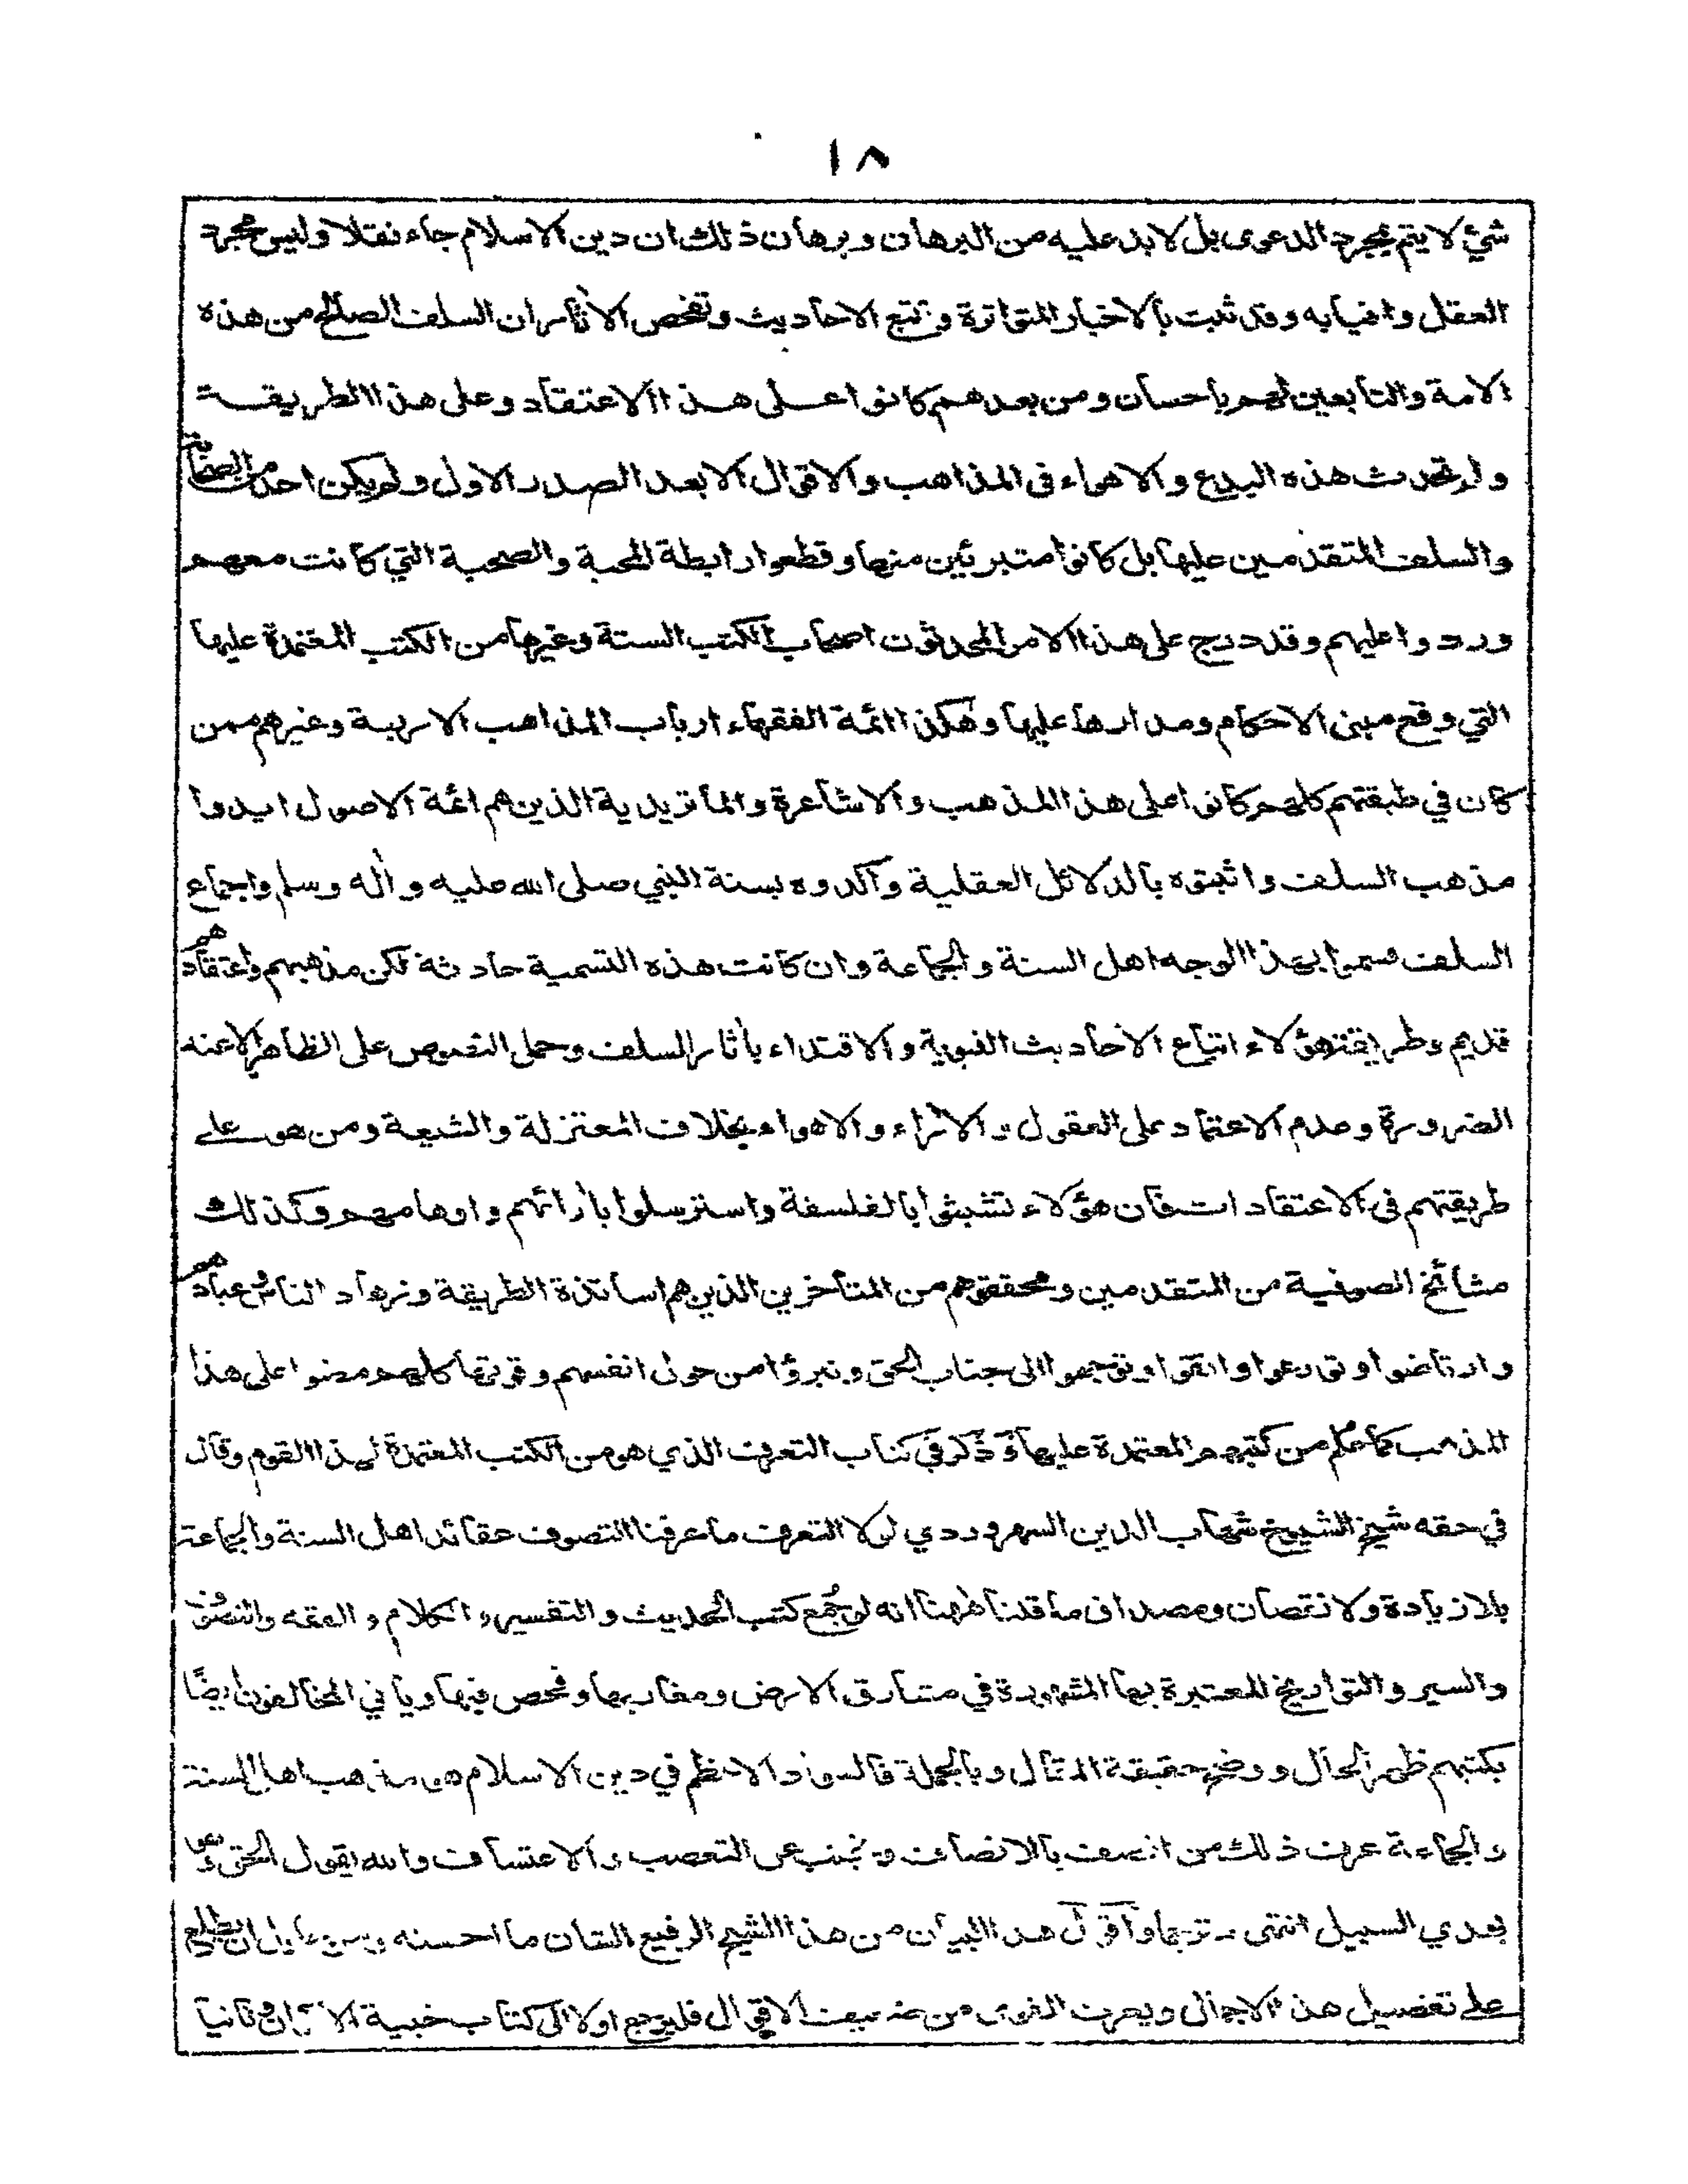 ١٨
شئ لا يتم بمجرد الدعوى بل لا بد عليه من البرهان وبرهان ذلك ان دين الاسلام جاء نقلا وليس بمجرد
العقل وافيا به وقد ثبت بالاخبار المتواترة وتتبع الاحاديث وتفحص الاٰثار ان السلف الصالح من هذه
الامة والتابعين لهم باحسان ومن بعدهم كانوا على هذا الاعتقاد وعلى هذا الطريقة
ولم تحدث هذه البدع والاهواء فى المذاهب والاقوال الا بعد الصدر الاول ولم يكن احد من الصحابة
والسلف المتقدمين عليها بل كانوا متبرئين منها وقطعوا رابطة المحبة والصحبة التي كانت معهم
وردوا عليهم وقد درج على هذا الامر المحدثون اصحاب الكتب الستة وغيرها من الكتب المعتمدة عليها
التي وقع مبنى الاحكام ومدارها عليها وهكذا ائمة الفقهاء ارباب المذاهب الاربعة وغيرهم ممن
كان في طبقتهم كلهم كانوا على هذا المذهب والاشاعرة والماتريدية الذين هم ائمة الاصول ايدوا
مذهب السلف واثبتوه بالدلائل العقلية وآكدوه بسنة النبي صلى الله عليه واٰله وسلم واجماع
السلف فسموا بهذا الوجه اهل السنة والجماعة وان كانت هذه التسمية حادثة لكن مذهبهم واعتقادهم
قديم وطريقة هؤلاء اتباع الاحاديث النبوية والاقتداء باٰثار السلف وحمل النصوص على الظاهر الا عند
الضرورة وعدم الاعتماد على العقول والاٰراء والاهواء بخلاف المعتزلة والشيعة ومن هو على
طريقتهم فى الاعتقادات فان هؤلاء تشبثوا بالفلسفة واسترسلوا باٰرائهم واوهامهم وكذلك
مشائخ الصوفية من المتقدمين ومحققوهم من المتاخرين الذين هم اساتذة الطريقة وزهاد الناس وعبادهم
وارتاضوا وتورعوا واتقوا وتوجهوا الى جناب الحق وتبرؤا من حول انفسهم وقوتها كلهم مضوا على هذا
المذهب كما علم من كتبهم المعتمدة عليها وَذُكر في كتاب التعرف الذي هو من الكتب المعتمدة لهذا القوم وقال
في حقه شيخ الشيوخ شهاب الدين السهروردي لولا التعرف ما عرفنا التصوف عقائد اهل السنة والجماعة
بلا زيادة ولا نقصان ومصداق ما قلنا ههنا انه لو جُمع كتب الحديث والتفسير والكلام والفقه والتصوف
والسير والتواريخ المعتبرة بها المشهورة في مشارق الارض ومغاربها وفحص فيها وياتي المخالفون ايضًا
بكتبهم ظهر الحال ووضح حقيقة المقال وبالجملة فالسواد الاعظم في دين الاسلام هو مذهب اهل السنة
والجماعة عرف ذلك من انصف بالانصاف وتجنب عن التعصب والاعتساف والله يقول الحق وهو
يهدي السبيل انتهى مترجما وآقول هذا البيان من هذا الشيخ الرفيع الشان ما احسنه ومن ان يطلع
على تفصيل هذا الاجمال ويعرف القوى من ضعيف الاقوال فليرجع اولا الى كتاب خبية الاكوان وثانيا